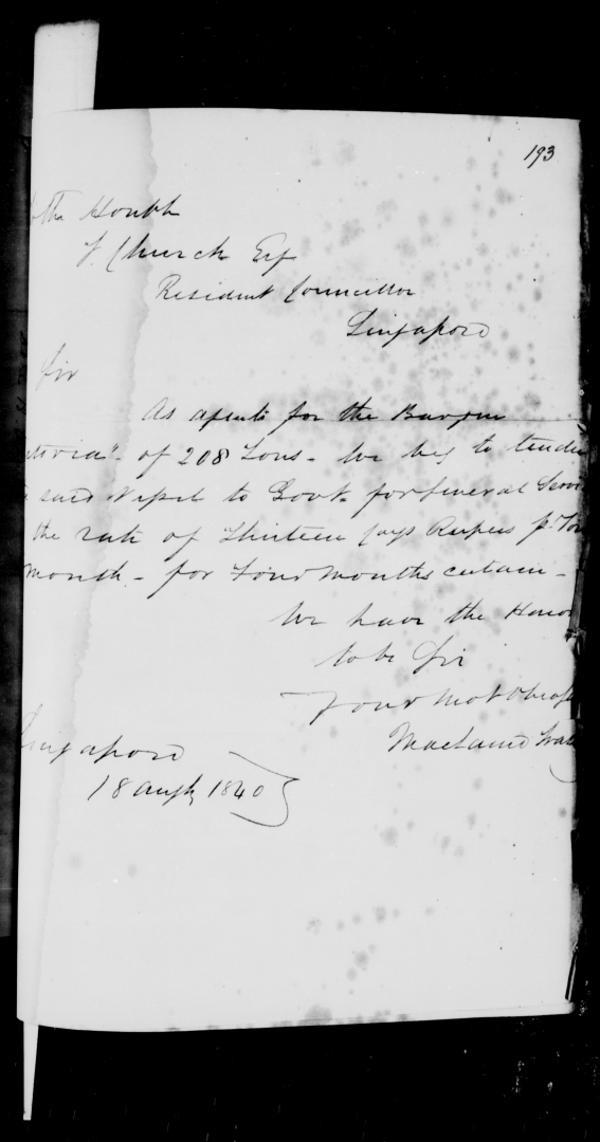 193
the Honble
T. Church Esq
Resident Councillor
Singapore
Sir
As agents for the Barque
toria" of 208 Tons - We beg to tender
said Vessel to Govt. for general Servi
the rate of Thirteen Rupees p. Ton
month - for Four Months certain -
We have the Honor
to be Sir
Your Most Obed
Maclaine
Singapore
18 Augt 1840